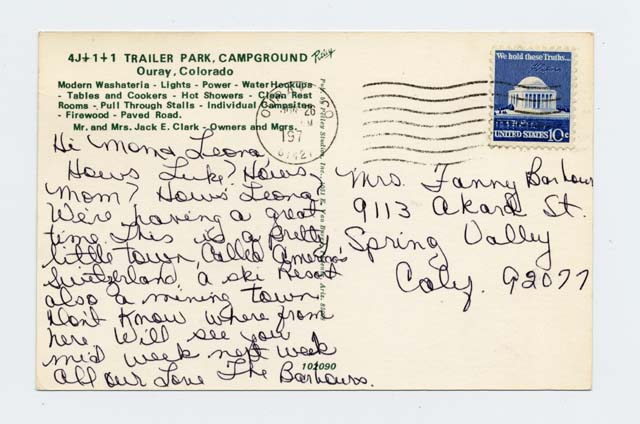 4J+1+1 TRAILER PARK, CAMPGROUND
Ouray, Colorado
Modern Washateria - Lights - Power - Water Hookups
- Tables and Cookers - Hot Showers - Clean Rest
Rooms - Pull Through Stalls - Individual Campsites
- Firewood - Paved Road.
Mr. and Mrs. Jack E. Clark - Owners and Mgrs.
Post
We hold these Truths...
UNITED STATES 10c
26
197
Hi Mom & Leona
Hows Luke? Hows
Mom? Hows Leona
We're having a great
time This is a pretty
little town, Called America's
Switzerland, a ski Resort
also a mining town
Don't Know where from
here Will see you
mid week next week
All our Love The Barbours.
Mrs. Fanny Barbour
9113 Akard St.
Spring Valley
Caly. 92077
102090